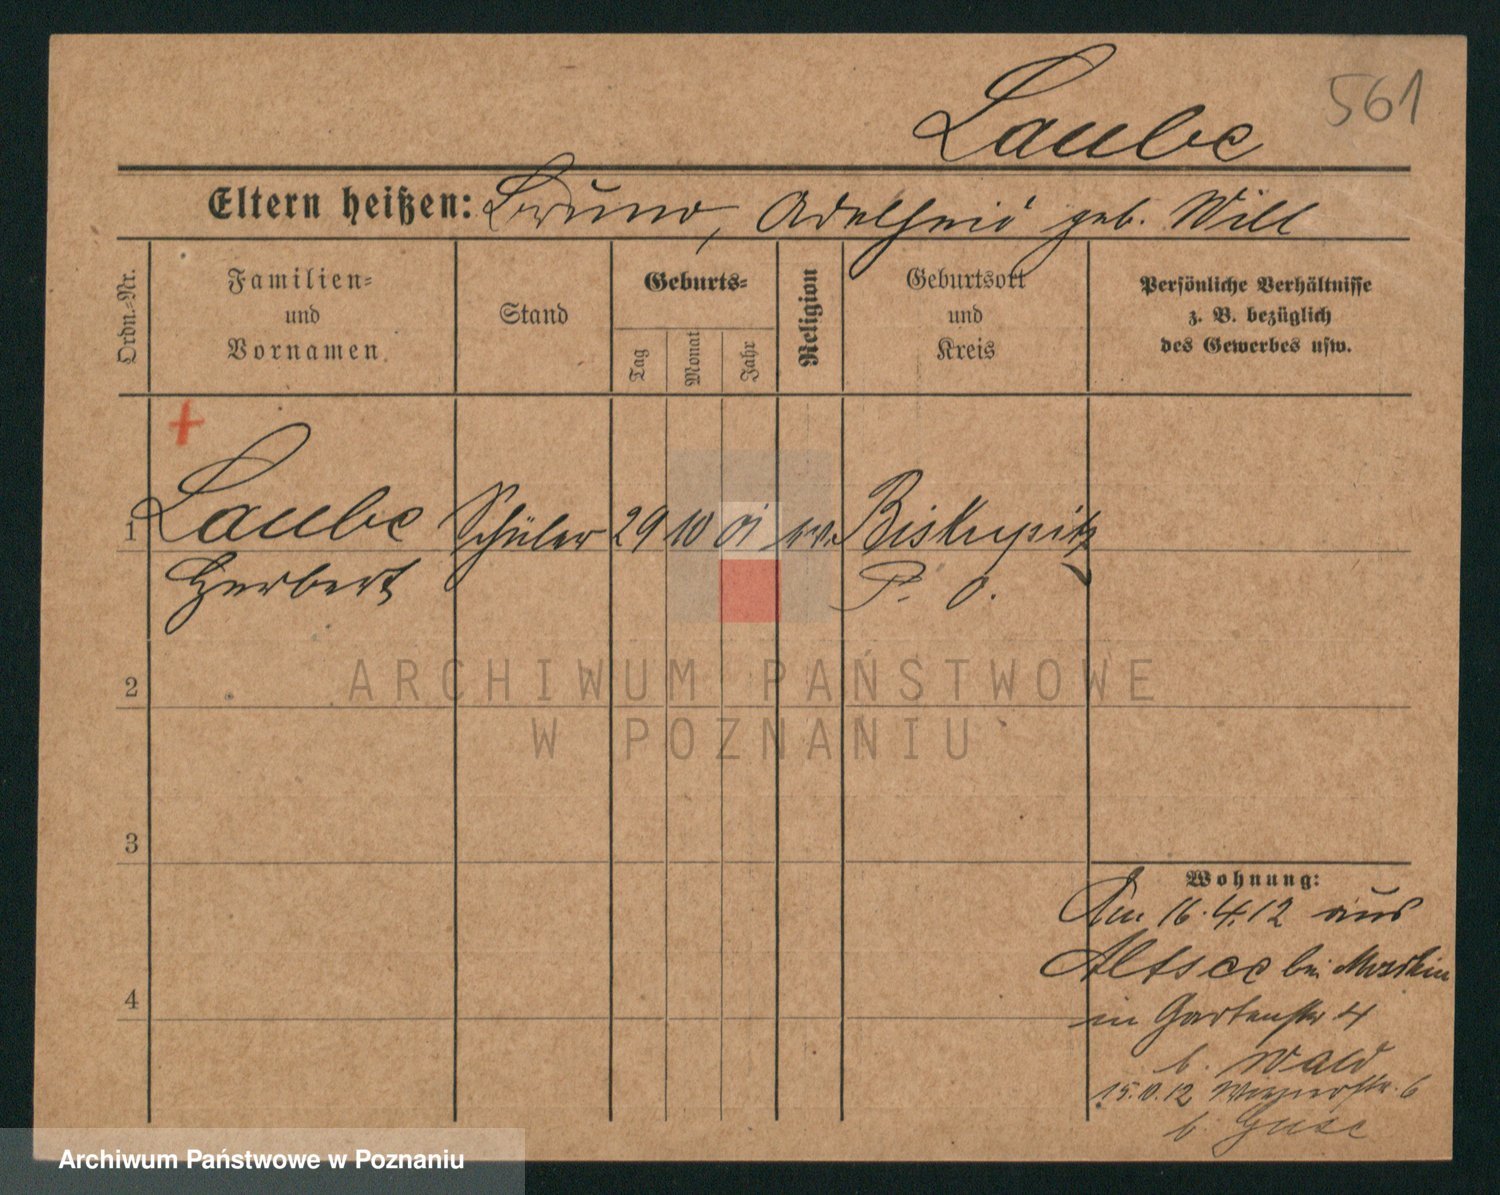 561
Laube
Eltern heißen: Bruno, Adelheid geb. Will
Ordn.-Nr.
Familien-
und
Vornamen
Stand
Geburts-
Tag
Monat
Jahr
Religion
Geburtsort
und
Kreis
Persönliche Verhältnisse
z. B. bezüglich
des Gewerbes usw.
1 Laube Schüler 29 10 01 ev. Biskupitz
Herbert P. O.
2
3
4
Wohnung:
Am 16.4.12 aus
Altsee bei
in Gartenstr 4
b. Wald
15.10.12 6
b.
ARCHIWUM PAŃSTWOWE
W POZNANIU
Archiwum Państwowe w Poznaniu